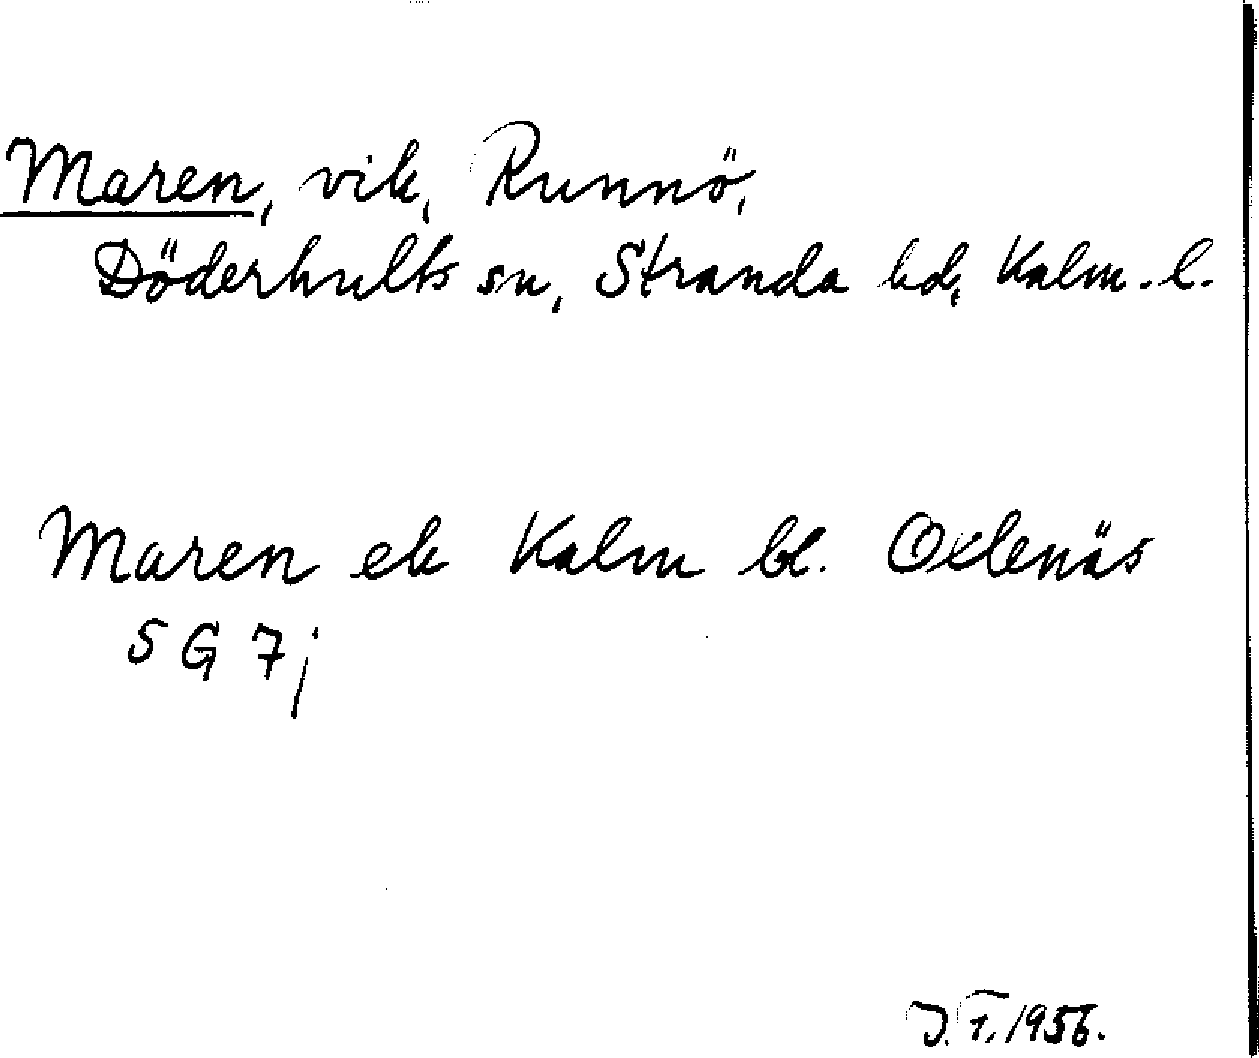 Maren, vik, Runnö,
Döderhults sn, Stranda hd, Kalm. l.
Maren ek Kalm bl. Oxlenäs
5 G 7 j
J.F. 1956.